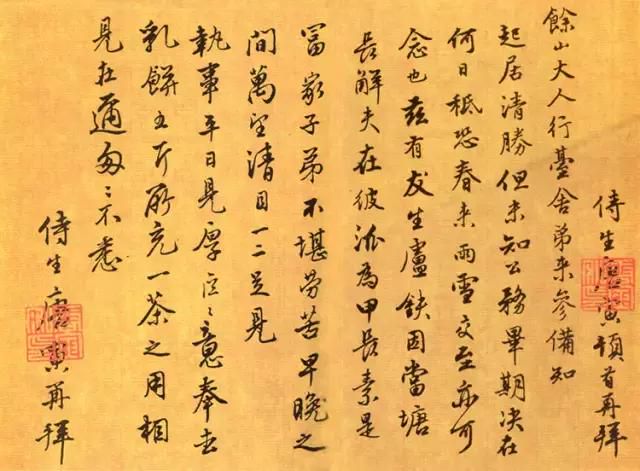 侍生唐寅頓首再拜
餘山大人行臺舍弟来參備知
起居清勝但未知公務畢期決在
何日秪恐春来雨雪交至亦可
念也茲有友生盧鈇因當塘
長解夫在彼派為甲長素是
富家子弟不堪勞苦早晚之
間萬望清目一二足見
執事平日見厚意奉去
乳餅五斤所充一茶之用相
見在邇匆〻不悉
侍生唐寅再拜